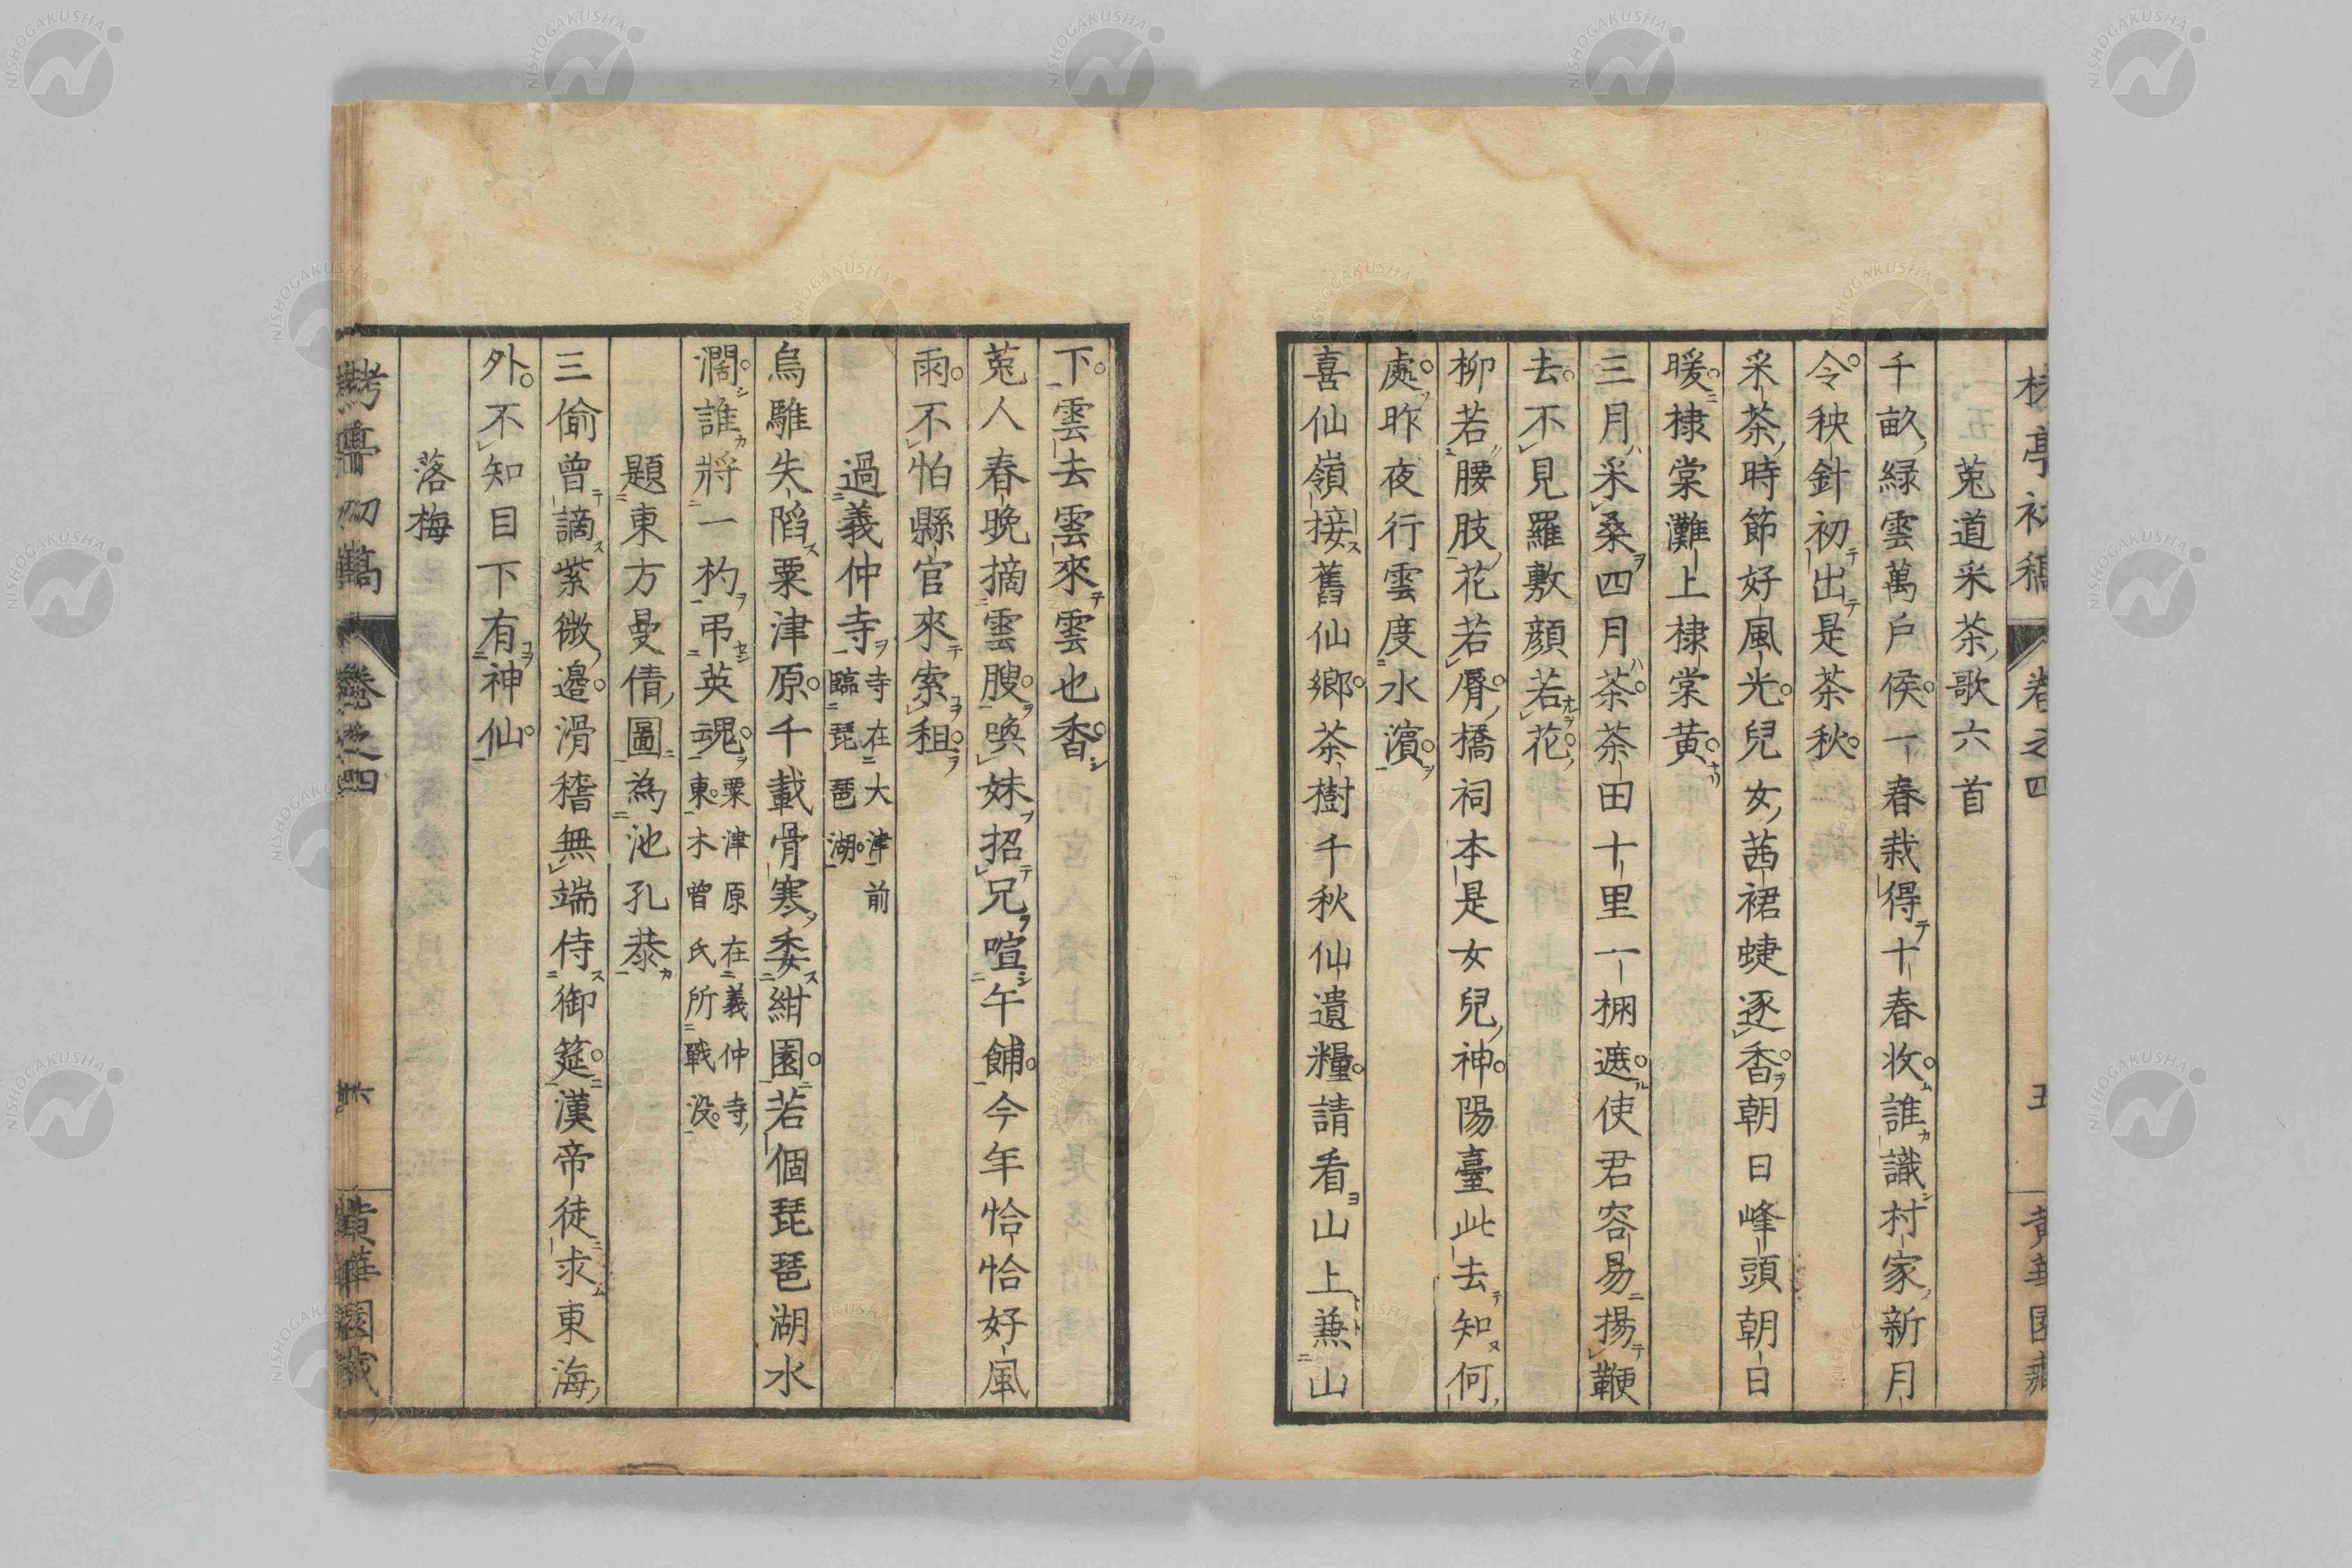 亭初稿 卷之四 五 黃華園藏
菟道采茶歌六首
千畝綠雲萬戶侯一春栽得十春收誰識村家新月
令秧針初出是茶秋
采茶時節好風光兒女茜裙蜨逐香朝日峰頭朝日
暖棣棠灘上棣棠黃
三月采桑四月茶茶田十里一棚遮使君容易揚鞭
去不見羅敷顏若花
柳若腰肢花若脣橋祠本是女兒神陽臺此去知何
處昨夜行雲度水濱
喜仙嶺接舊仙鄉茶樹千秋仙遺糧請看山上兼山
下雲去雲來雲也香
菟人春晚摘雲腴喚妹招兄喧午餔今年恰恰好風
雨不怕縣官來索租
過義仲寺寺在大津前臨琵琶湖
烏騅失陷粟津原千載骨寒委紺園若個琵琶湖水
濶誰將一杓弔英魂粟津原在義仲寺東木曾氏所戰沒
題東方曼倩圖為池孔恭
三偷曾謫紫微邊滑稽無端侍御筵漢帝徒求東海
外不知目下有神仙
落梅
亭初稿 卷之四 黃華園藏
NISHOGAKUSHA